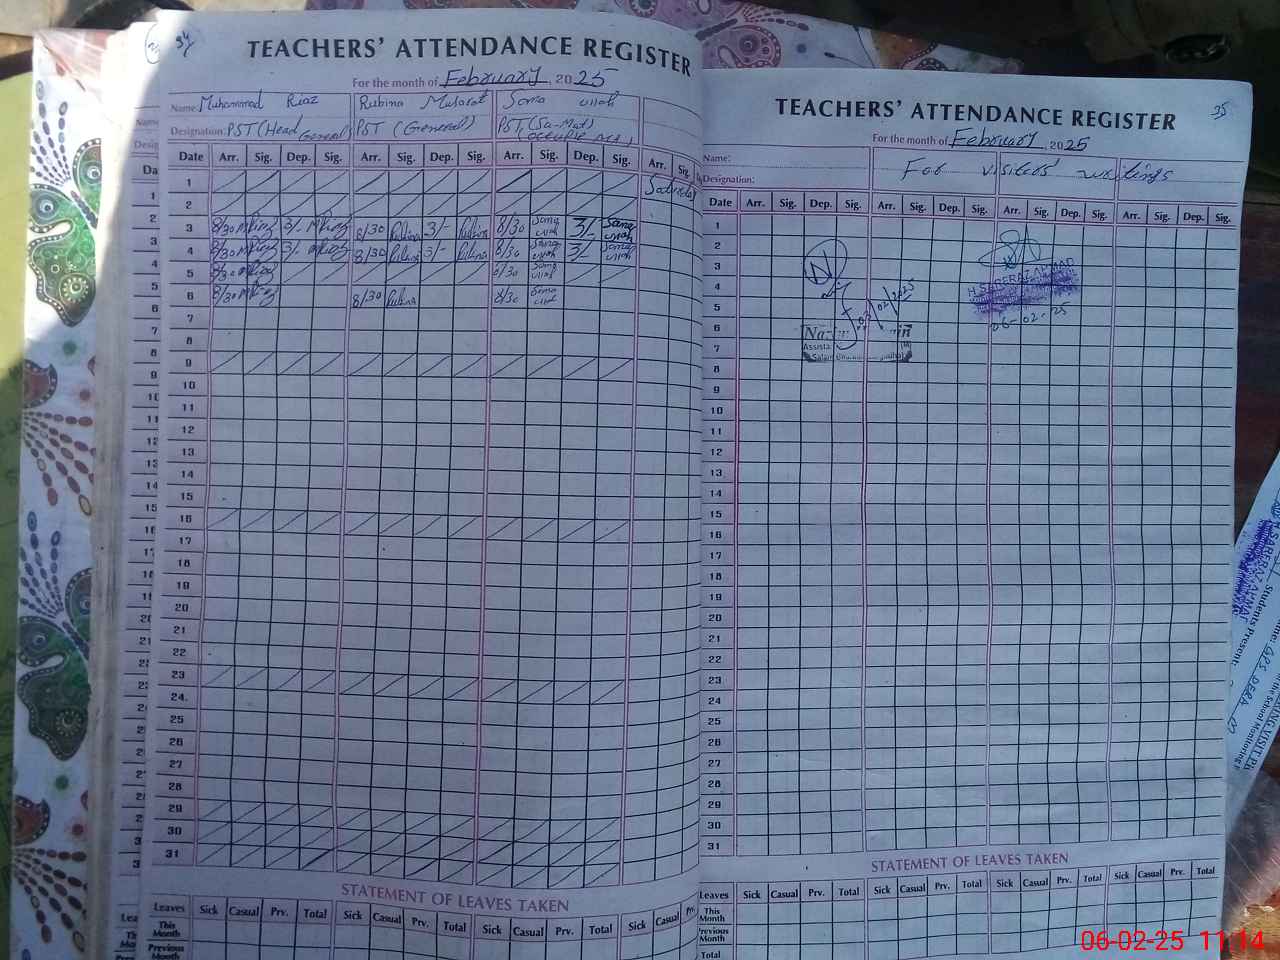 34
TEACHERS' ATTENDANCE REGISTER
For the month of February, 2025
Name Muhammad Riaz Rubina Musarat Soma
Designation: PST (Head General) PST (General) PST
Date Arr. Sig. Dep. Sig. Arr. Sig. Dep. Sig. Arr. Sig. Dep. Sig. Arr. Sig.
1
2
3 8/30 MRiaz 3/- MRiaz 8/30 Rubina 3/- Rubina 8/30 Soma 3/- Soma
4 8/30 MRiaz 3/- MRiaz 8/30 Rubina 3/- Rubina 8/30 Soma 3/- Soma
5 8/30 MRiaz 8/30 Soma
6 8/30 MRiaz 8/30 Rubina 8/30 Soma
7
8
9
10
11
12
13
14
15
16
17
18
19
20
21
22
23
24
25
26
27
28
29
30
31
STATEMENT OF LEAVES TAKEN
Leaves Sick Casual Prv. Total Sick Casual Prv. Total Sick Casual Prv. Total Sick Casual
This Month
Previous Month
35
TEACHERS' ATTENDANCE REGISTER
For the month of February, 2025
Name: For visiters' writings
Designation:
Date Arr. Sig. Dep. Sig. Arr. Sig. Dep. Sig. Arr. Sig. Dep. Sig. Arr. Sig. Dep. Sig.
1
2
3
4
5
6
7
8
9
10
11
12
13
14
15
16
17
18
19
20
21
22
23
24
25
26
27
28
29
30
31
03/02/2025
H.SARFRAZ AHMAD
06-02-25
STATEMENT OF LEAVES TAKEN
Leaves Sick Casual Prv. Total Sick Casual Prv. Total Sick Casual Prv. Total Sick Casual Prv. Total
This Month
Previous Month
Total
H.SARFRAZ AHMAD
Students Present:
GPS DERA
the School Monitoring
06-02-25 11:14